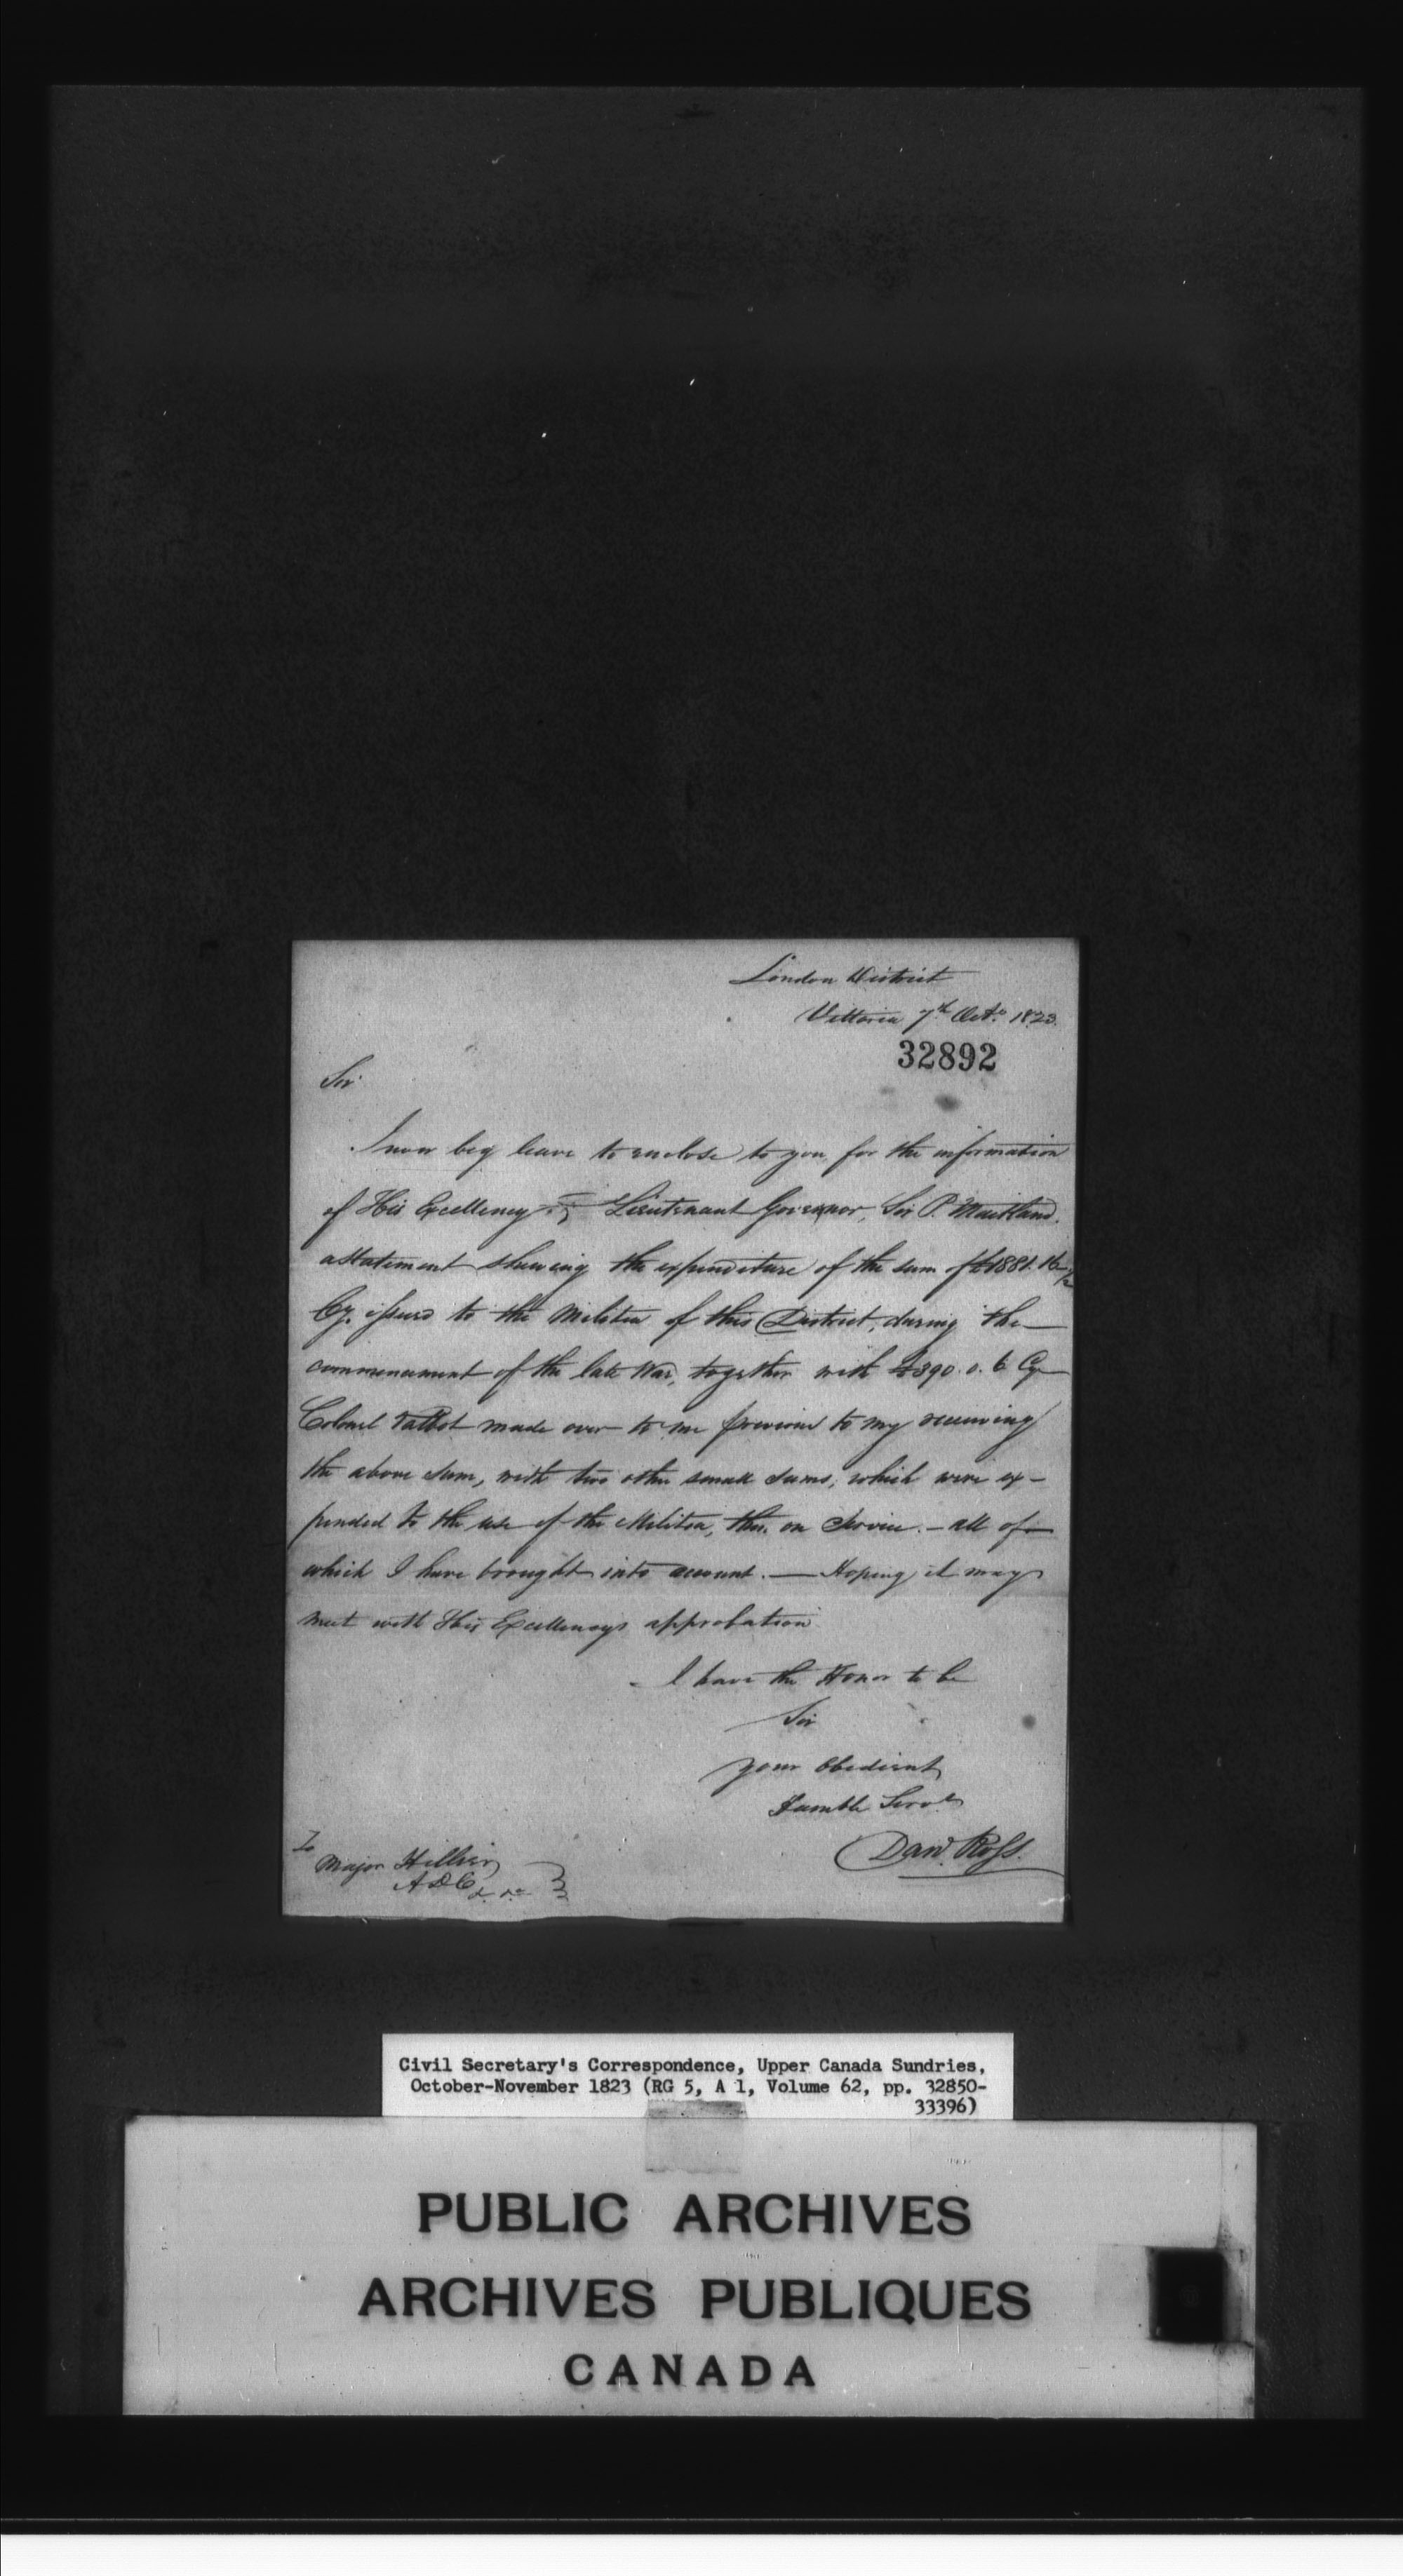 London District
Vittoria 7th Octr. 1823.
32892
Sir
I now beg leave to enclose to you, for the information
of His Excellency the Lieutenant Governor, Sir P. Maitland.
a statement shewing the expenditure of the sum of £1881. 16
Cy. issued to the Militia of this District, during the
commencement of the late War, together with £390. 0. 6 Cy
Colonel Talbot made over to me previous to my receiving
the above sum, with two other small sums, which were ex-
pended to the use of the Militia, then on Service. - all of
which I have brought into account. — Hoping it may
meet with His Excellencys approbation
I have the Honor to be
Sir
your Obedient
Humble Servt
Danl. Ross.
To
Major Hillier
ADC
Civil Secretary's Correspondence, Upper Canada Sundries,
October-November 1823 (RG 5, A 1, Volume 62, pp. 32850-
33396)
PUBLIC ARCHIVES
ARCHIVES PUBLIQUES
CANADA